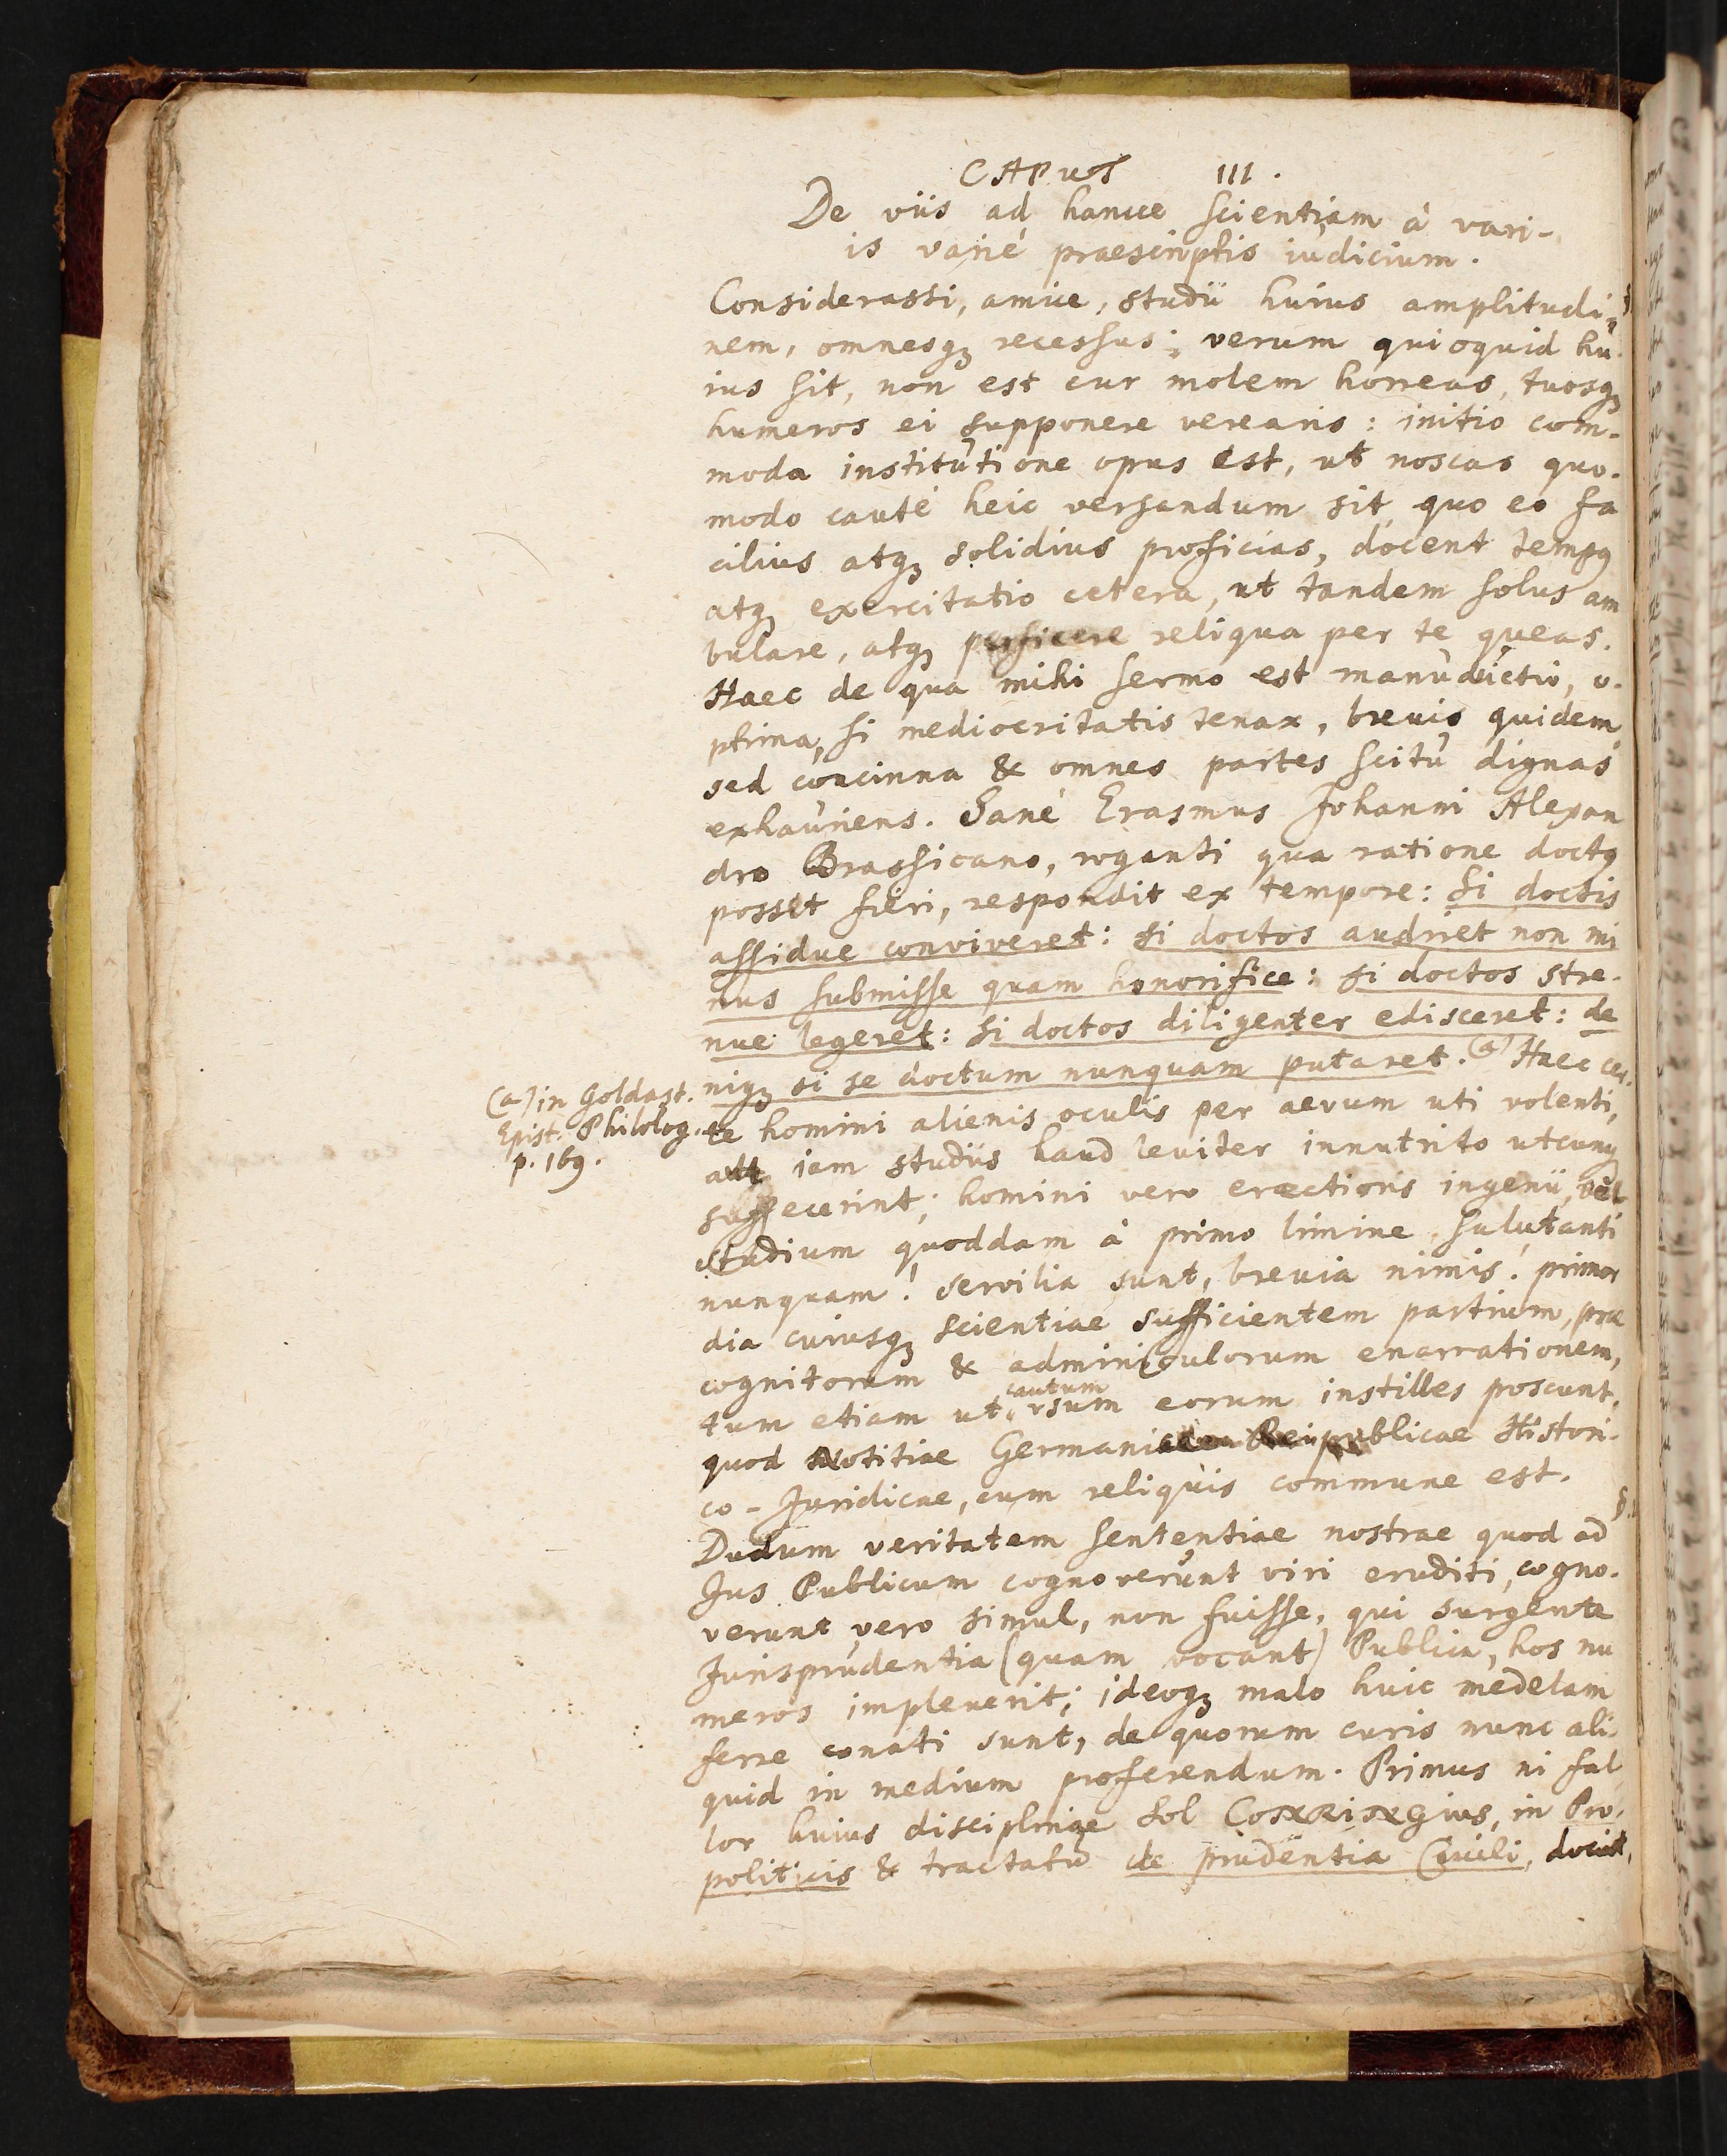 CAPUT III.
De viis ad hancce scientiam à vari-
is variè praescriptis iudicium.
Considerasti, amice, studii huius amplitudi-
nem, omnesq; recessus; verum quicquid hu-
ius sit, non est cur molem horreas, tuosq;
humeros ei supponere verearis: initio com-
moda institutione opus est, ut noscas quo-
modo cautè heic versandum sit, quo eo fa
cilius atq; solidius proficias, docent tempus
atq; exercitatio cetera, ut tandem solus am
bulare, atq; perficere reliqua per te queas.
Haec de qua mihi sermo est manuductio, o-
ptima, si mediocritatis tenax, brevis quidem,
sed concinna & omnes partes scitu dignas
exhauriens. Sanè Erasmus Johanni Alexan
dro Brassicano, roganti qua ratione doctus
posset fieri, respondit ex tempore: Si doctis
assidue conviveret: si doctos audiret non mi
nus submisse quam honorifice: si doctos stre-
nue legeret: si doctos diligenter edisceret: de
niq; si se doctum nunquam putaret. (a) Haec cer-
(a) in Goldast.
Epist. Philolog.
p. 169.
te homini alienis oculis per aevum uti volenti,
aut iam studiis haud leviter innutrito utcunq;
suffecerint; homini vero erectioris ingenii, vel
studium quoddam à primo limine salutanti
nunquam! servilia sunt, brevia nimis. primor
dia cuiusq; scientiae sufficientem partium, prae
cognitorum & adminiculorum enarrationem,
tum etiam ut cautum usum eorum instilles poscunt,
quod Notitiae Germanicae Reipublicae Histori-
co-Juridicae, cum reliquis commune est.
Dudum veritatem sententiae nostrae quod ad §.
Jus Publicum cognoverunt viri eruditi, cogno-
verunt vero simul, non fuisse, qui surgente
Jurisprudentia (quam vocant) Publica, hos nu
meros impleverit; ideoq; malo huic medelam
ferre conati sunt, de quorum curis nunc ali-
quid in medium proferendum. Primus ni fal
lor huius disciplinae Sol CONRINGius, in Pro-
politicis & tractatu de prudentia Civili, docuit,